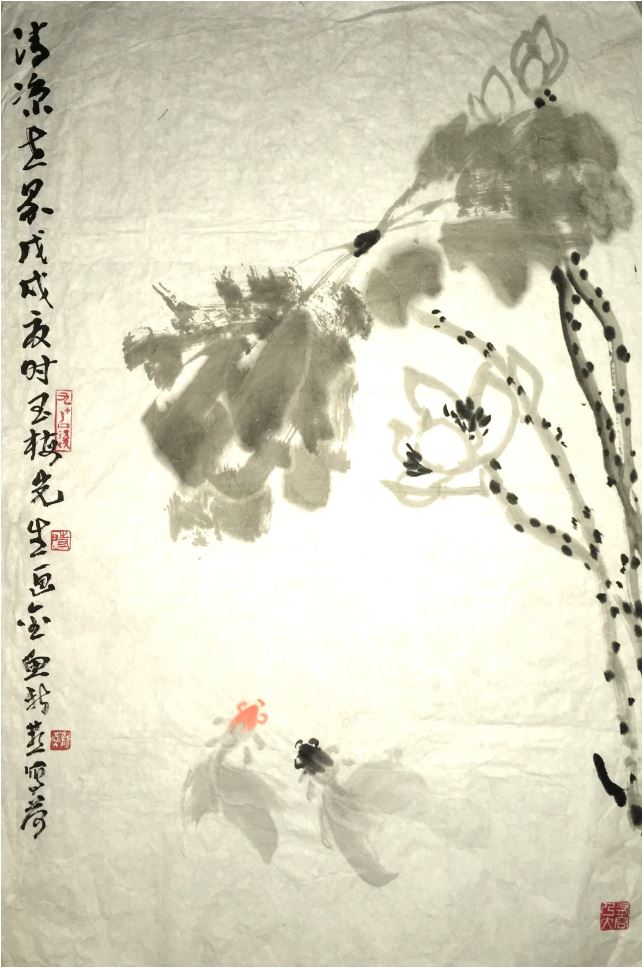 清凉世界戊戌夏时玉梅先生画金鱼新写荷